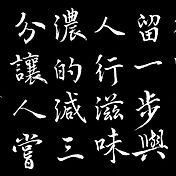 留一步與
人行滋味
濃的減三
分讓人嘗